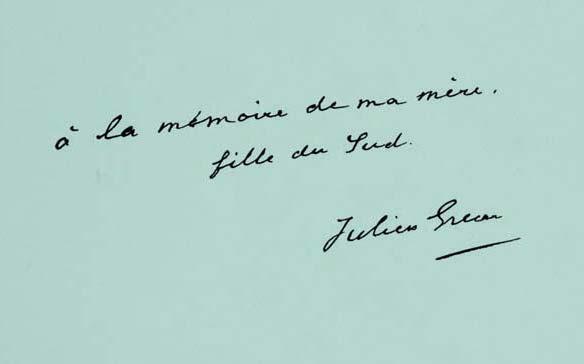 à la mémoire de ma mère.
fille du Sud.
Julien Green